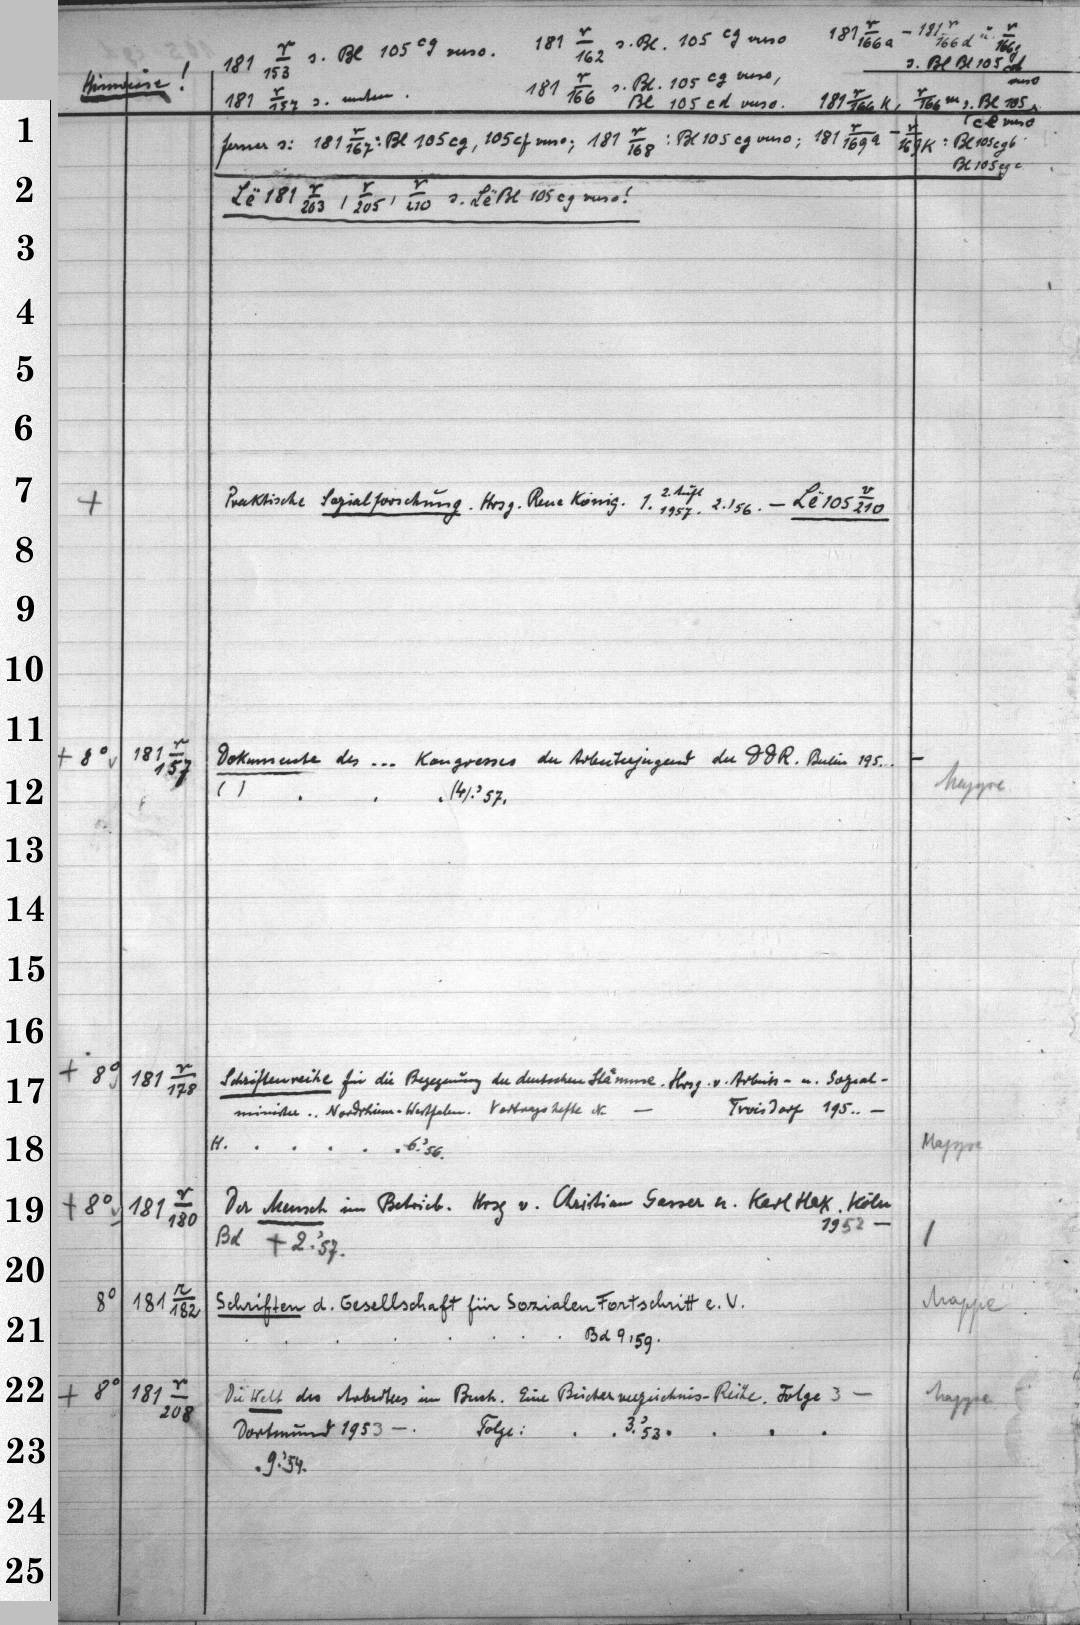 181 r/153 s. Bl 105 cg verso. 181 r/162 s. Bl. 105 cg verso 181 r/166a - 181 r/166d u. r/166g
s. Bl Bl 105 verso
Hinweise!
181 r/157 s. unten. 181 r/166 s. Bl. 105 cg verso, Bl 105 cd verso. 181 r/166 k, r/166 m s. Bl 105 ce verso
1 ferner s: 181 r/167: Bl 105 cg, 105 cf verso; 181 r/168 : Bl 105 cg verso; 181 r/169a - r/169k : Bl 105 cgb
Bl 105 cgc
2 Lë 181 r/203, r/205, r/210 s. Lë Bl 105 cg verso!
3
4
5
6
7 + Praktische Sozialforschung. Hrsg. Rene König. 1. 2. Aufl 1957. 2.'56. — Lë 105 v/210
8
9
10
11
+ 8° 181 r/157 Dokumente des ... Kongresses der Arbeiterjugend der DDR. Berlin 195.. —
12 ( ) . . . (4).'57. Mappe
13
14
15
16
17 + 8° 181 r/178 Schriftenreihe für die Begegnung der deutschen Stämme. Hrsg. v. Arbeits- u. Sozial-
minister .. Nordrhein-Westfalen. Vortragshefte — Troisdorf 195.. —
18 H. . . . . . 6.'56. Mappe
19 + 8° 181 r/180 Der Mensch im Betrieb. Hrsg v. Christian Gasser u. Karl Hax. Köln
1952 —
Bd + 2.'57. /
20
8° 181 r/182 Schriften d. Gesellschaft für Sozialen Fortschritt e. V. Mappe
21 . . . . . . . Bd 9,59.
22 + 8° 181 r/208 Die Welt des Arbeiters im Buch. Eine Bücherverzeichnis-Reihe. Folge 3 — Mappe
Dortmund 1953 —. Folge: . . 3.'53. . . .
23 . 9.'54.
24
25